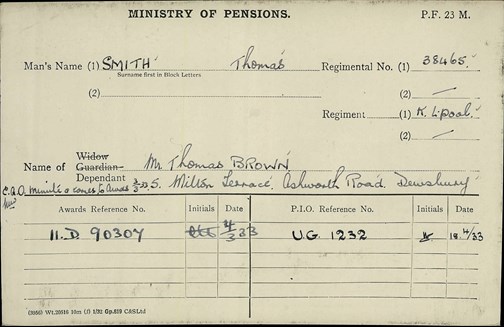 MINISTRY OF PENSIONS. P.F. 23 M.
Man's Name (1) SMITH Thomas Regimental No. (1) 38465.
Surname first in Block Letters
(2) (2) —
Regiment (1) K. L'pool.
(2) —
Widow
Name of Guardian Mr Thomas BROWN
Dependant 5. Milton Terrace. Ashworth Road. Dewsbury
Minute
Awards Reference No. Initials Date P.I.O. Reference No. Initials Date
11.D 90307 4/3 33 U.G. 1232 18 4/33
(3066) Wt.20516 18m (1) 1/32 Gp.839 C&SLtd